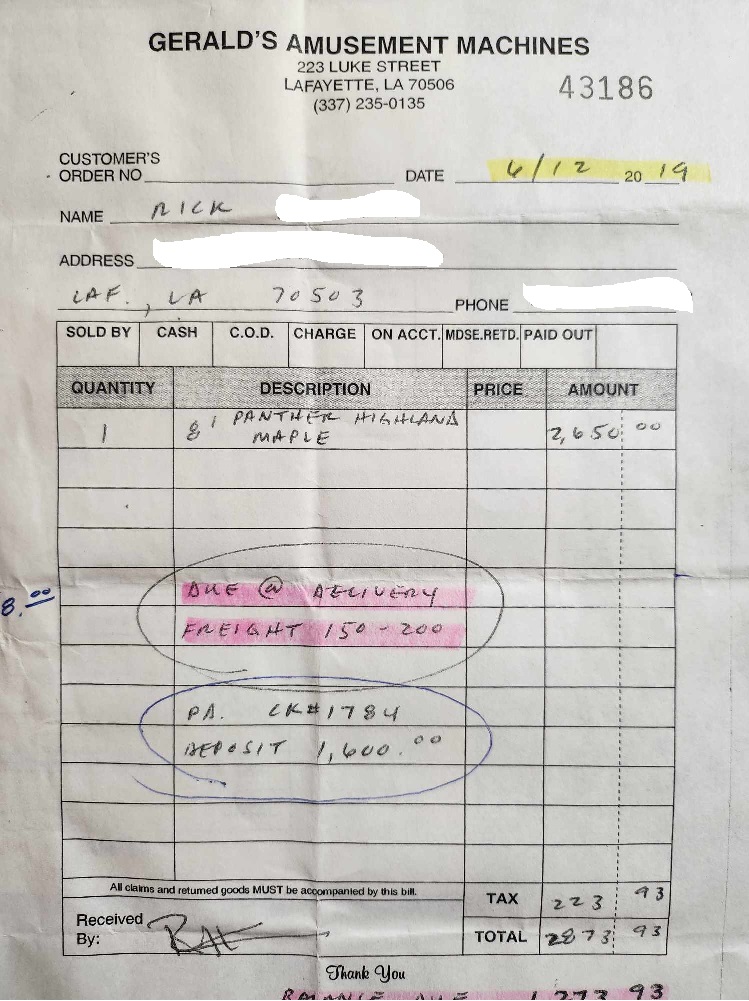 GERALD'S AMUSEMENT MACHINES
223 LUKE STREET
LAFAYETTE, LA 70506
(337) 235-0135
43186
CUSTOMER'S
ORDER NO DATE 6/12 20 19
NAME RICK
ADDRESS
LAF., LA 70503 PHONE
SOLD BY CASH C.O.D. CHARGE ON ACCT. MDSE.RETD. PAID OUT
QUANTITY DESCRIPTION PRICE AMOUNT
1 8' PANTHER HIGHLAND 2,650 00
MAPLE
DUE @ DELIVERY
8.00
FREIGHT 150-200
PD. CK#1784
DEPOSIT 1,600.00
All claims and returned goods MUST be accompanied by this bill.
TAX 223 93
Received
By:
TOTAL 2873 93
Thank You
BALANCE DUE 1,273 93